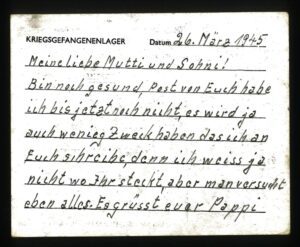 KRIEGSGEFANGENENLAGER Datum 26. März 1945
Meine liebe Mutti und Sohni!
Bin noch gesund, Post von Euch habe
ich bis jetzt noch nicht, es wird ja
auch wenieg Zweck haben das ich an
Euch schreibe, denn ich weiss ja
nicht wo Ihr steckt, aber man versucht
eben alles. Es grüsst euer Pappi